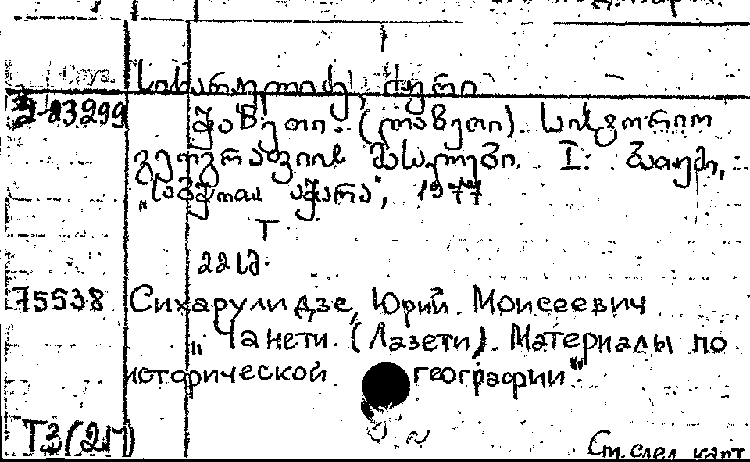 სიხარულიძე, იური
Э-83299
ჭანეთი. (ლაზეთი). საისტორიო
გეოგრაფიის მასალები. I. ბათუმი,
„საბჭოთა აჭარა", 1977
T
221გ.
75538 Сихарулидзе, Юрий Моисеевич
„Чанети. (Лазети). Материалы по
исторической географии"
T3(2Г)
См. след. карт